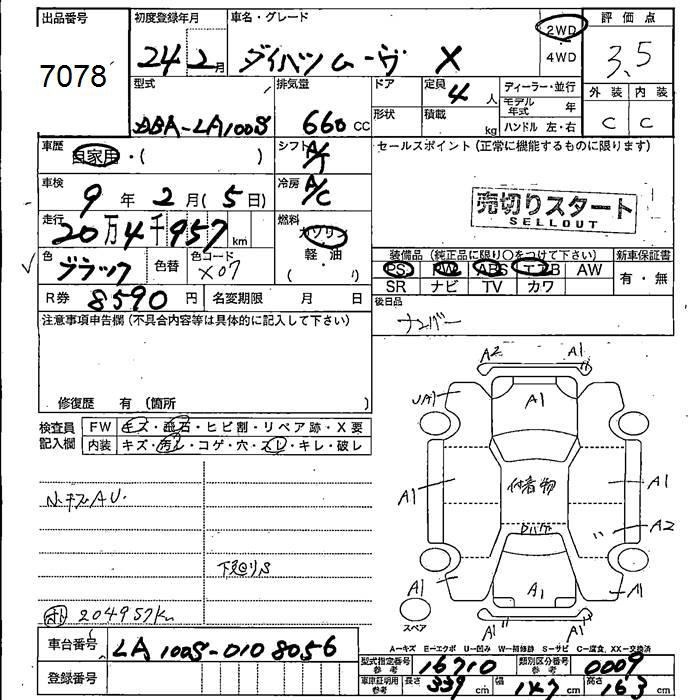 出品番号
7078
初度登録年月
24 2月
車名・グレード
ダイハツ ムーヴ X
2WD
4WD
評価点
3.5
外装 内装
C C
型式
DBA-LA100S
排気量
660 CC
ドア
形状
定員
4人
積載
kg
ディーラー・並行
モデル年式 年
ハンドル 左・右
車歴
自家用・( )
シフト
A/T
セールスポイント (正常に機能するものに限ります)
売切りスタート
SELLOUT
車検
9年2月(5日)
冷房
A/C
走行
20万4千957km
燃料
ガソリン
軽・油
( )
色
ブラック
色替
色コード
X07
装備品 (純正品に限り○をつけて下さい)
新車保証書
PS PW ABS エアB AW
有・無
SR ナビ TV カワ
R券 8590円
名変期限 月 日
後日品
ナンバー
注意事項申告欄 (不具合内容等は具体的に記入して下さい)
修復歴 有 (箇所 )
検査員
記入欄
FW キズ・飛石・ヒビ割・リペア跡・X要
内装 キズ・汚レ・コゲ・穴・スレ・キレ・破レ
小キズAU.
下廻りS
204957km
A2 A1
UA1 A1
A1 付着物 A1
A2
A1 A1
A1 A1
スペア
A―キズ E―エクボ U―凹み W―補修跡 S―サビ C―腐食、XX―交換済
車台番号
LA100S-0108056
登録番号
型式指定番号
参考
16710
類別区分番号
参考
0009
車庫証明用
参考
長さ 339cm 幅 147cm 高さ 163cm